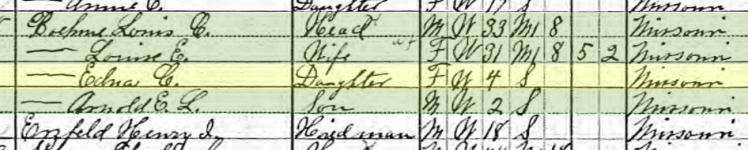 Annie C. Daughter F W 17 S Missouri
Boehme Louis C. Head M W 33 M1 8 Missouri
— Louise E. Wife F W 31 M1 8 5 2 Missouri
— Edna C. Daughter F W 4 S Missouri
— Arnold E. L. Son M W 2 S Missouri
Enzfeld Henry J. Hired man M W 18 S Missouri